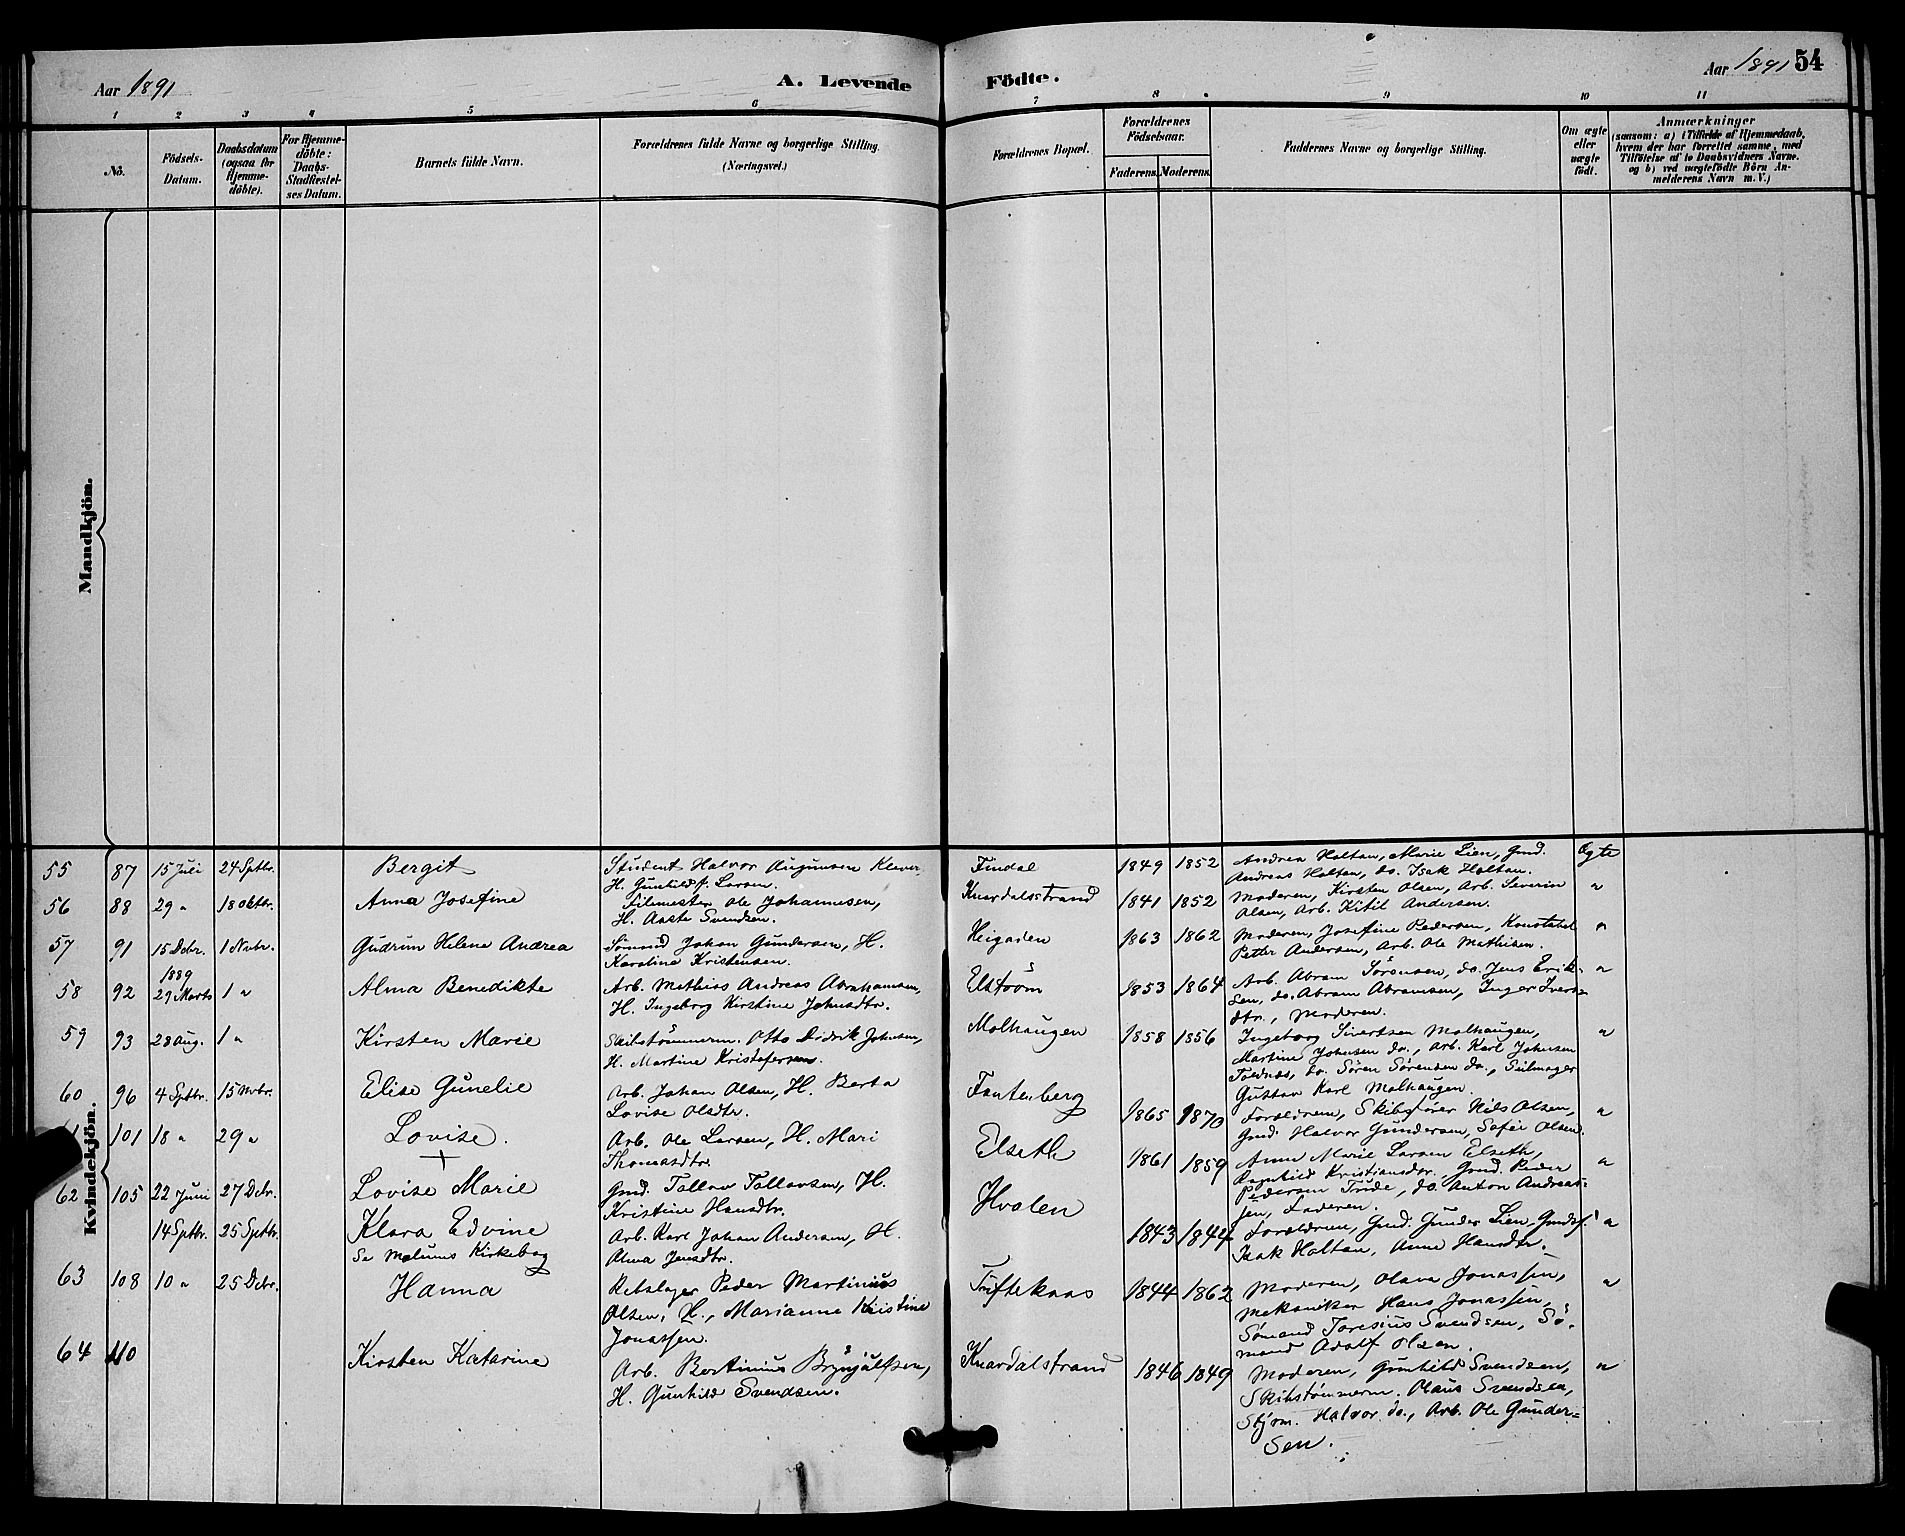 Aar 1891
A. Levende Födte.
Aar 1891 54
1 2 3 4 5 6 7 8 9 10 11
No.
Födsels-Datum.
Daabsdatum (ogsaa for Hjemme-döbte).
For Hjemme-döbte: Daabs-Stadfæstel-ses Datum.
Barnets fulde Navn.
Forældrenes fulde Navne og borgerlige Stilling.
(Næringsvei.)
Forældrenes Bopæl.
Forældrenes Födselsaar.
Faderens. Moderens.
Faddernes Navne og borgerlige Stilling.
Om ægte eller uægte födt.
Anmærkninger
(saasom: a) i Tilfælde af Hjemmedaab,
hvem der har forrettet samme, med
Tilföielse af to Daabsvidners Navne.
og b) ved uægtefödte Börn An-
melderens Navn m. V.)
Mandkjön.
Kvindekjön.
55 87 15 Juli 24 Sptbr. Bergit
Student Halvor Augunsen Klever,
H. Gunhild f. Larsen.
Findal 1849 1852
Andrea Holtan, Marie Lien, Gmd.
Andreas Holtan, do. Isak Holtan.
Ægte
56 88 29 " 18 Oktbr. Anna Josefine
Filemester Ole Johannesen,
H. Aaste Svendsen.
Knardalsstrand 1841 1852
Moderen, Kirsten Olsen, Arb. Severin
Olsen, Arb. Kitil Andersen.
"
57 91 15 Dcbr. 1 Nvbr. Gudrun Helene Andrea
Sömand Johan Gundersen, H.
Karoline Kristensen.
Heigaden 1863 1862
Moderen, Josefine Pedersen, Konstabel
Petter Andersen, Arb. Ole Mathisen.
"
58 92 1889 29 Marts 1 " Alma Benedikte
Arb. Mathias Andreas Abrahamsen,
H. Ingeborg Kirstine Johnsdtr.
Elström 1853 1864
Arb. Abram Sörensen, do. Jens Erik-
sen, do. Abram Abramsen, Inger Ivers-
dtr., Moderen.
"
59 93 28 Aug. 1 " Kirsten Marie
Skibstömmerm. Otto Didrik Johnsen,
H. Martine Kristofersen.
Molhaugen 1858 1856
Ingeborg Sivertsen Molhaugen,
Martine Johnsen do., Arb. Karl Johnsen
do. Sören Sörensen do., Seilmager
Gustav Karl Molhaugen.
"
60 96 4 Sptbr. 15 Nvbr. Elise Gunelie
Arb. Johan Olsen, H. Berta
Lovise Olsdtr.
Fantenberg 1865 1870
Forældrene, Skibsförer Nils Olsen,
Gmd. Halvor Gundersen, Sofie Olsen.
"
101 18 " 29 " Lovise.
+
Arb. Ole Larsen, H. Mari
Thomasdtr.
Elseth 1861 1859
Anne Marie Larsen Elseth,
Ragnhild Kristiansdtr., Gmd. Peder
Pedersen Trude, do. Anton Andreas-
sen, Faderen.
"
62 105 22 Juni 27 Dcbr. Lovise Marie
Gmd. Tallov Tallovsen, H.
Kristine Hansdtr.
Hvalen 1843 1844
Forældrene, Gmd. Gunder Lien, Gmdsf.
Isak Holtan, Anne Hansdtr.
"
14 Sptbr. 25 Sptbr. Klara Edvine
Se Melums Kirkebog
Arb. Karl Johan Andersen, H.
Alma Jensdtr.
63 108 10 " 25 Dcbr. Hanna
Rebslager Peder Martinius
Olsen, H., Marianne Kristine
Jonassen.
Tuftekaas 1844 1862
Moderen, Olava Jonassen,
Mekaniker Hans Jonassen,
Sömand Toresius Svendsen, Sö-
mand Adolf Olsen.
"
64 110 Kirsten Katarine
Arb. Bertinius Brynjulfsen,
H. Gunhild Svendsen.
Knardalstrand 1846 1849
Moderen, Gunhild Svendsen,
Skibstömmerm. Olaus Svendsen,
Styrm. Halvor do., Arb. Ole Gunder-
sen.
"